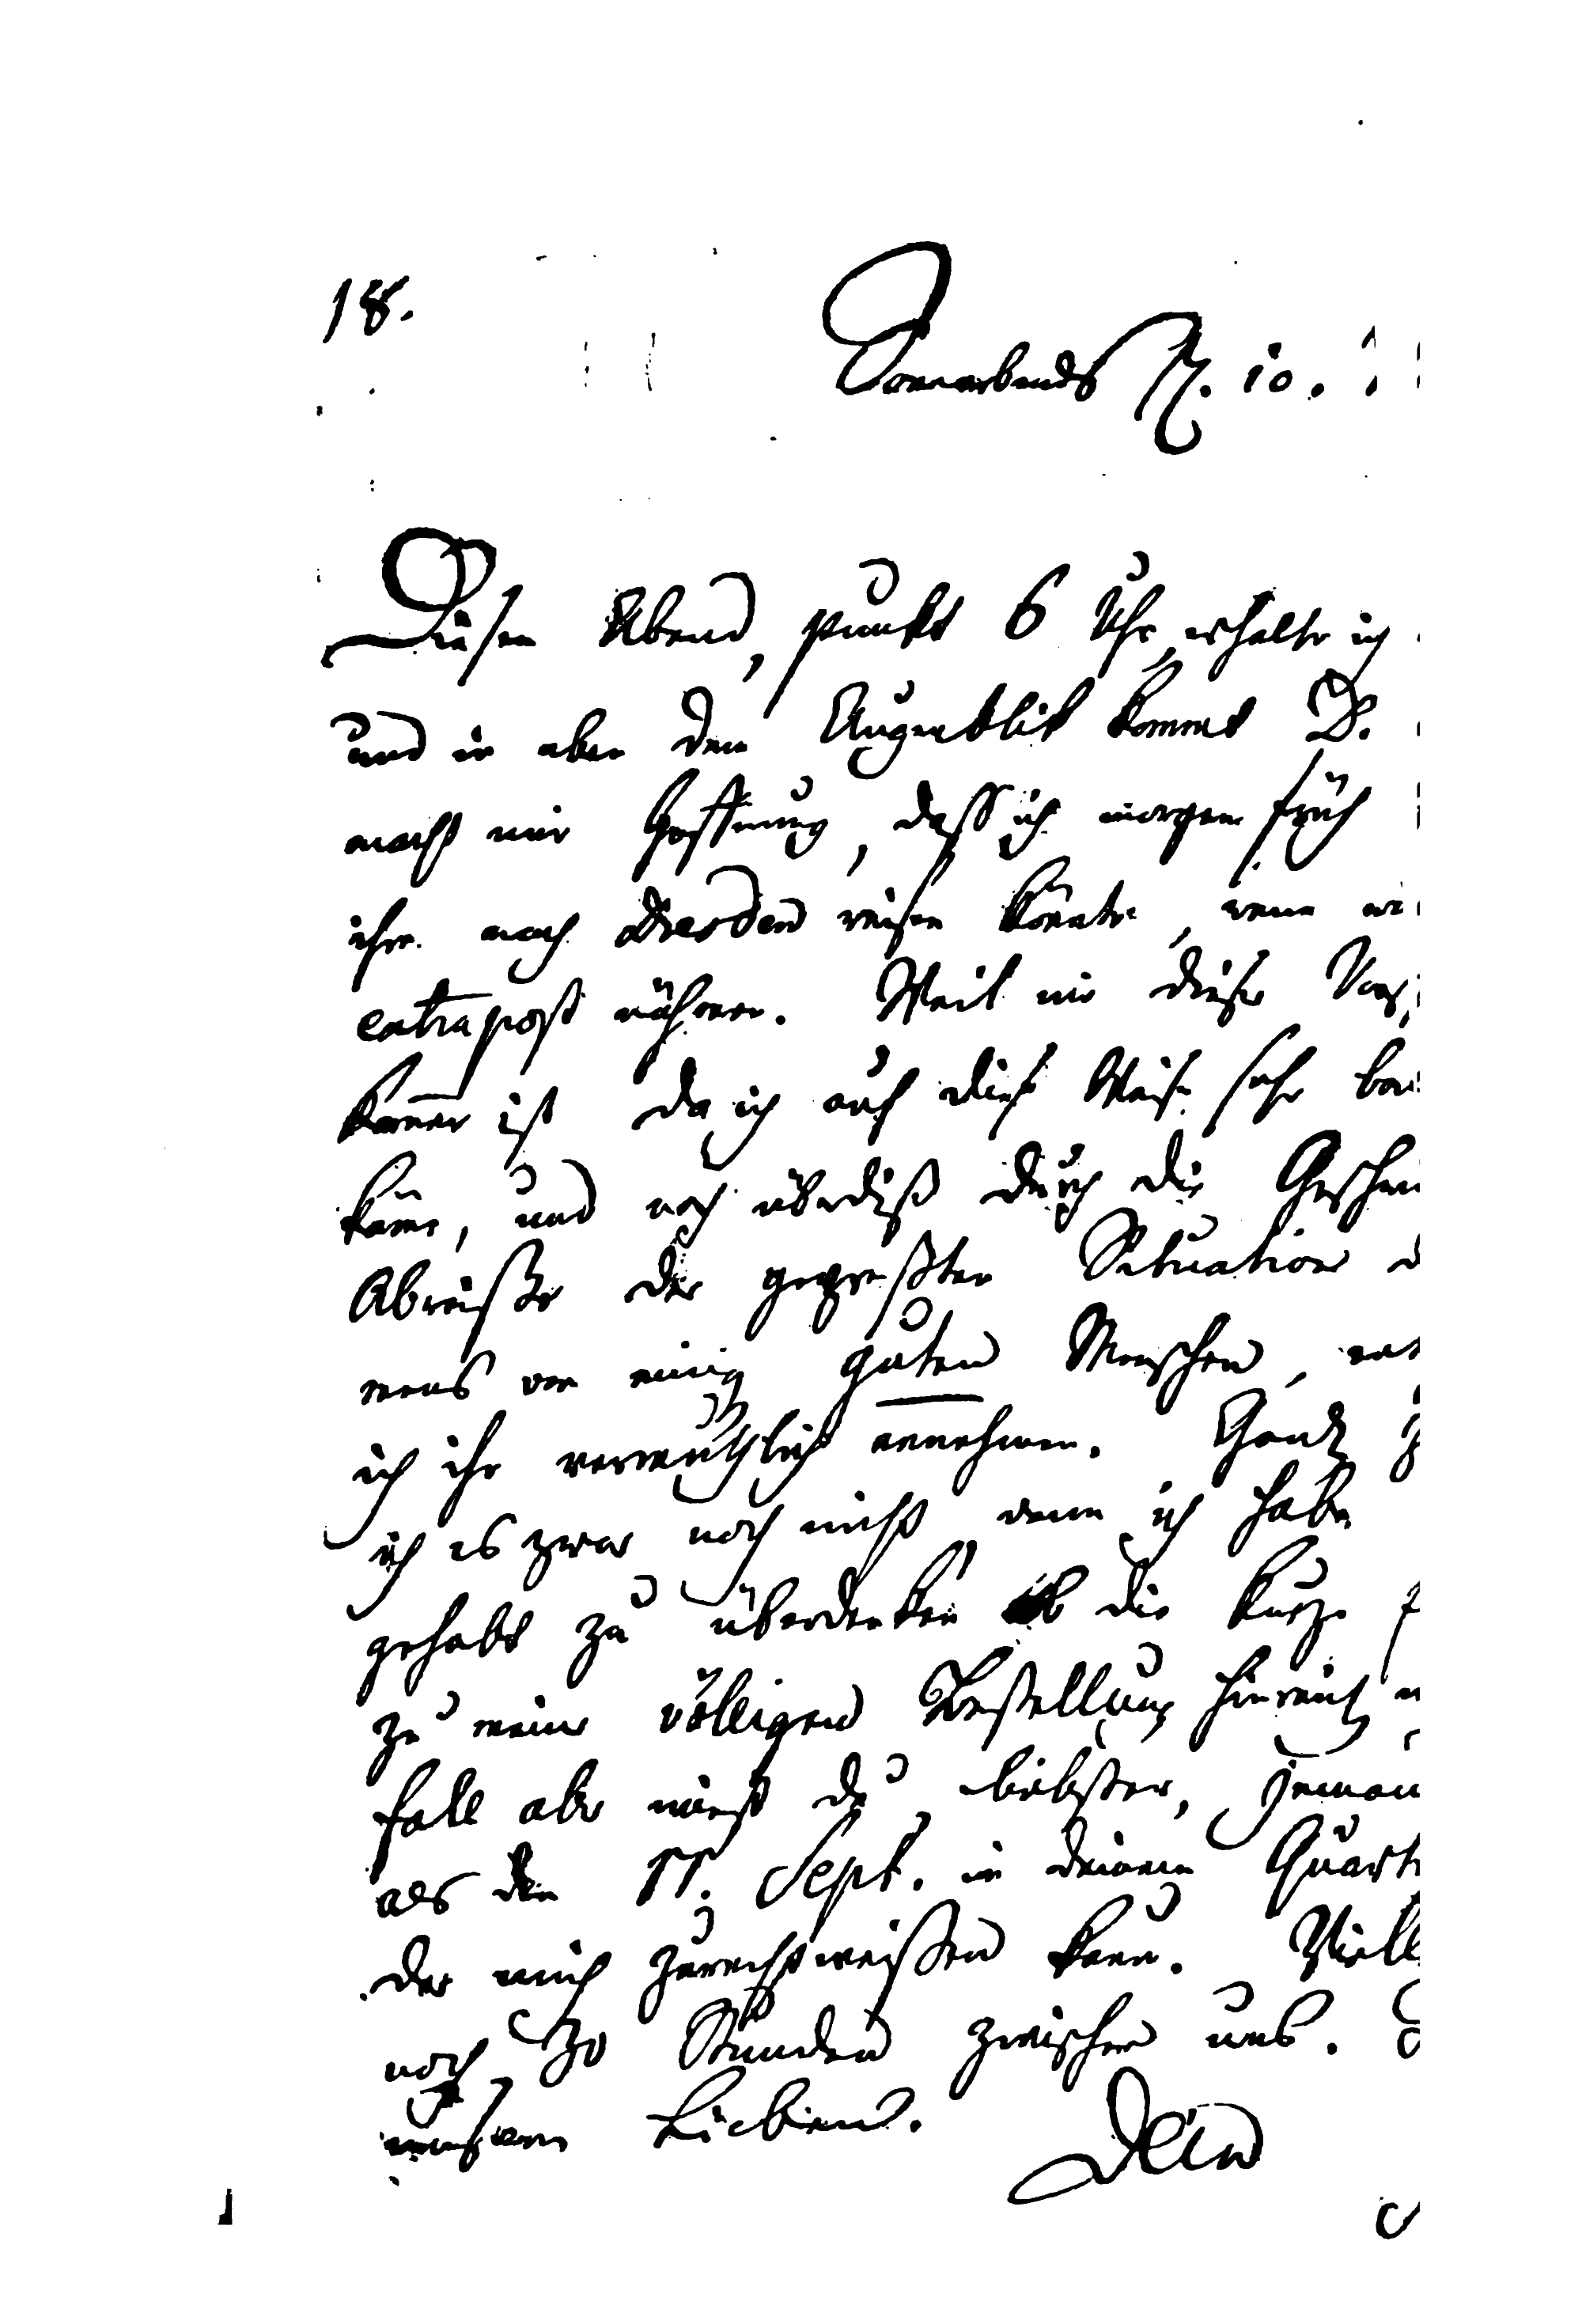 18.
Sonnabends N. 10.
Diesen Abend, punkt 6 Uhr, erhalte ich
und in eben dem Augenblik kommt D.
macht mir Hoffnung, daß ich morgen früh
ihm nach Dresden reisen könte, wenn wi
extrapost nähmen. Weil mir dieser Vors
komen ist da ich auf diese Weise sehr
käme, und noch überdiß durch die
Abreisse der gepreßten Situation d
eines guten Menschen,
ich ihn vermuthlich annehmen. Ganz
ich es zwar noch nicht, denn ich habe
gehabt zu überdenken ob die kurze
zu meiner völligen Bestellung hinreicht
fall aber must du, liebster, jeman
als den 11. Sept. in deinem Quart
der mich zurechtweissen kann. Viell
noch 30 Stunden zwischen uns.
unsern Lieben.
Dein